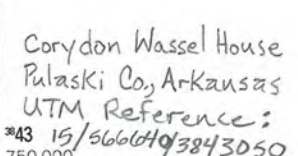 Corydon Wassel House
Pulaski Co., Arkansas
UTM Reference:
³⁸43 15/566640/3843050
750 000